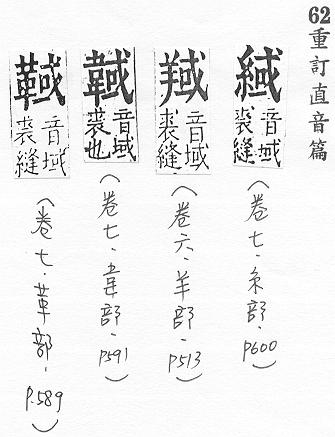 62重訂直音篇
緎
音域
裘縫
（卷七．糸部．P600）
音域
裘縫
（卷六．羊部．P513）
音域
裘也
（卷七．韋部．P591）
音域
裘縫
（卷七．革部．P.589）